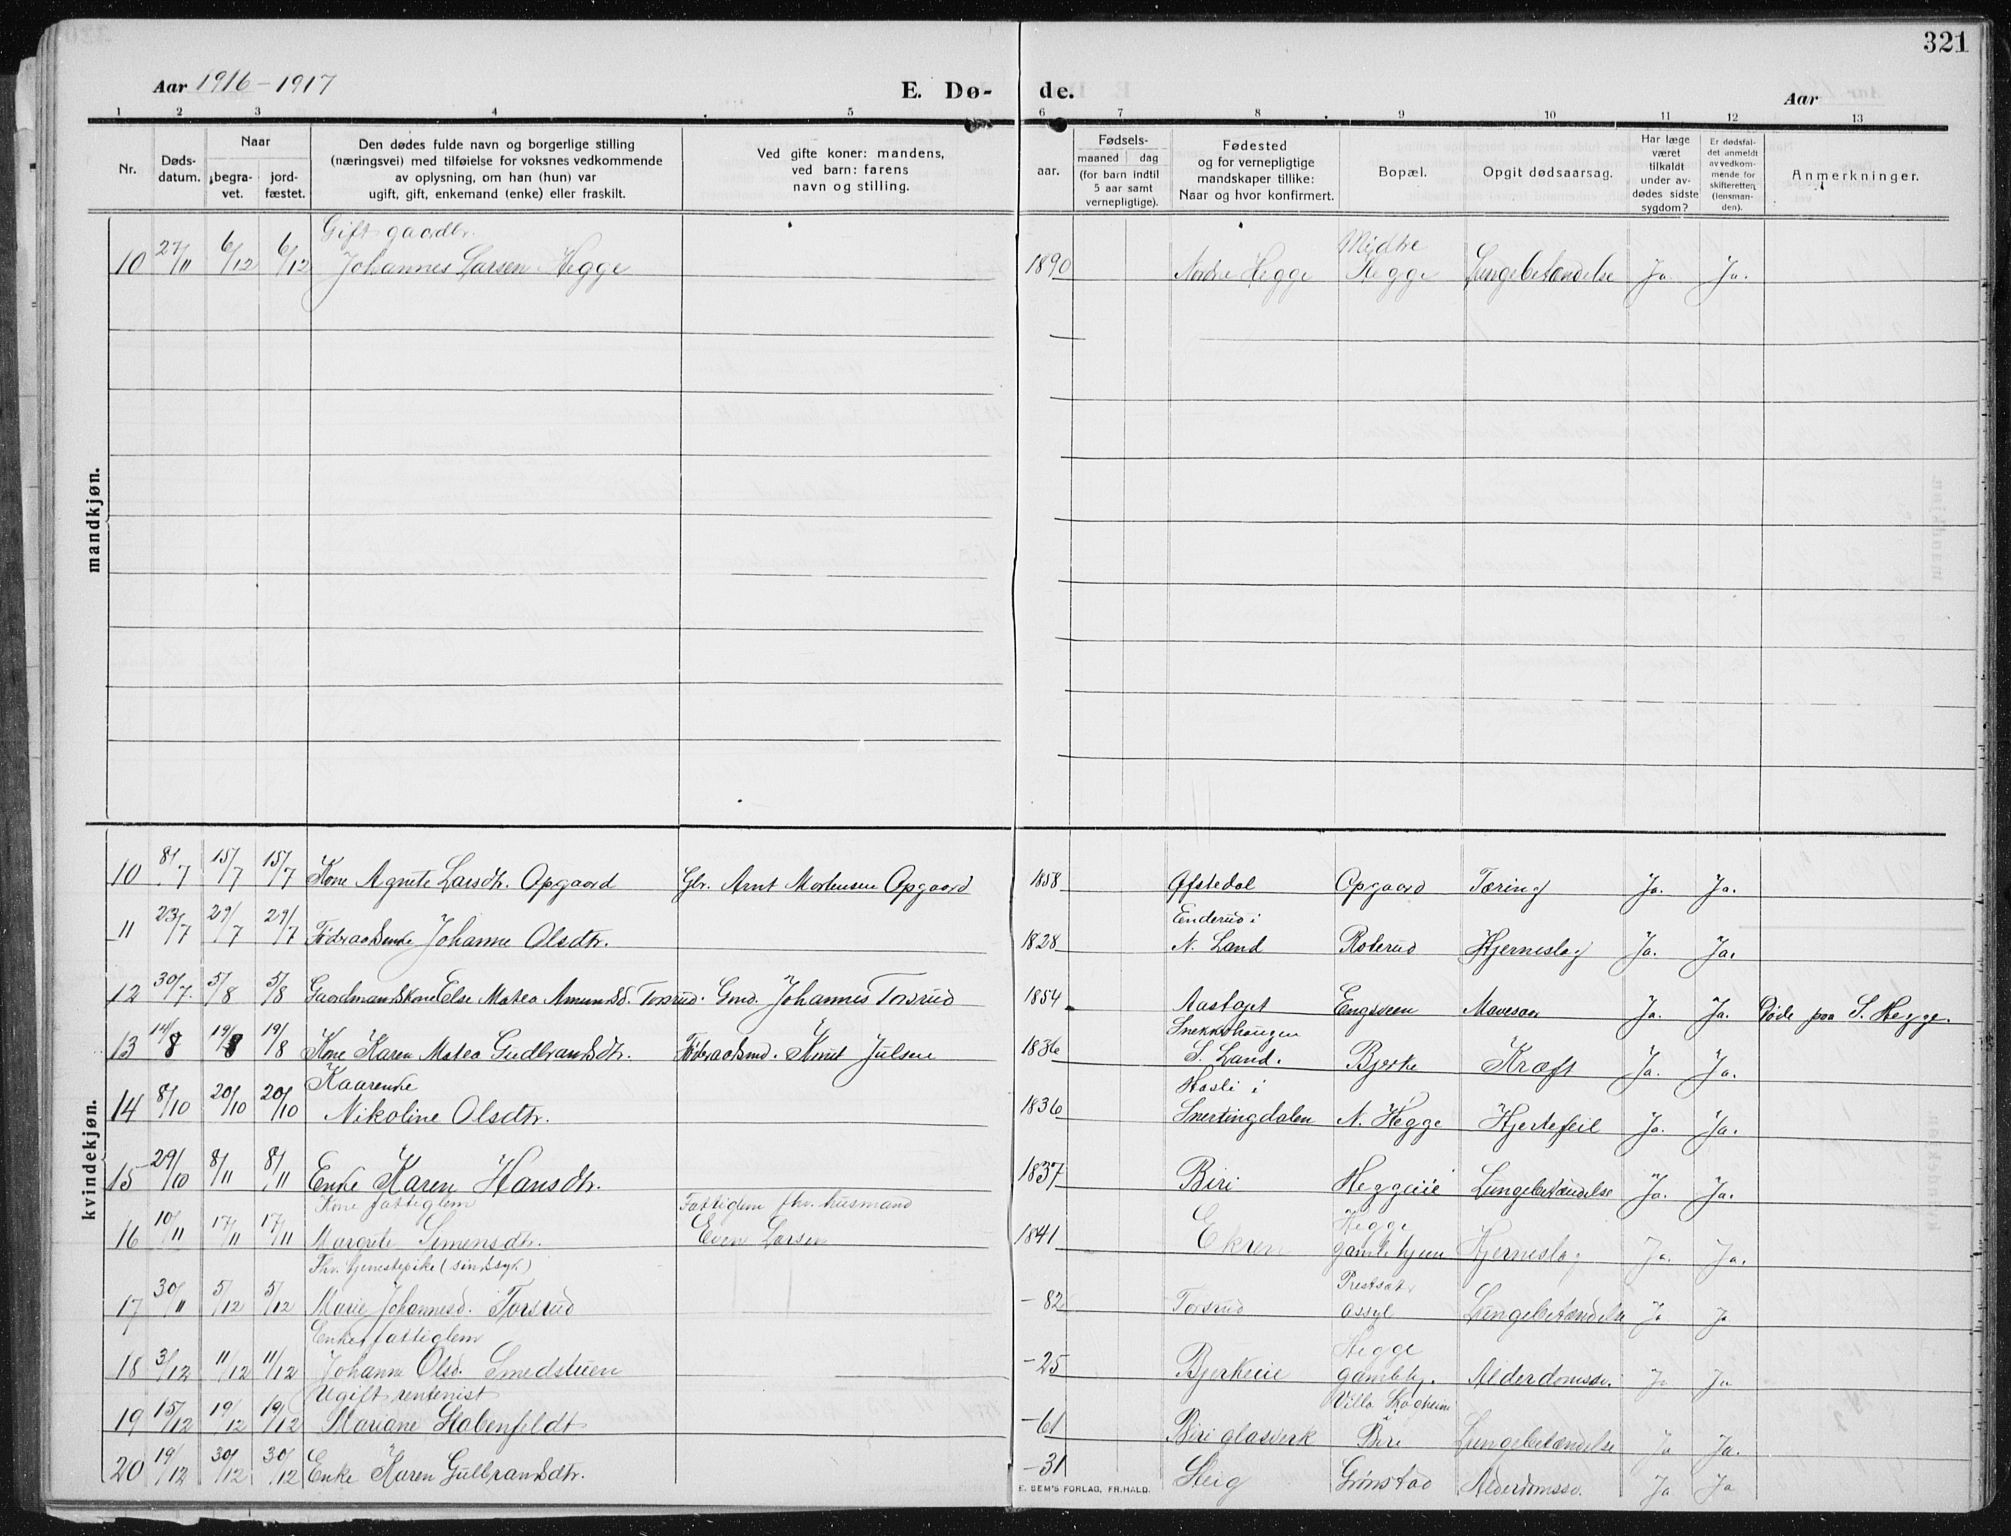 321
Aar 1916-1917
E. Dø-
de.
Aar
1 2 3 4 5 6 7 8 9 10 11 12 13
Nr.
Døds-
datum.
Naar
begra-
vet.
jord-
fæstet.
Den dødes fulde navn og borgerlige stilling
(næringsvei) med tilføielse for voksnes vedkommende
av oplysning, om han (hun) var
ugift, gift, enkemand (enke) eller fraskilt.
Ved gifte koner: mandens,
ved barn: farens
navn og stilling.
aar.
Fødsels-
maaned dag
(for barn indtil
5 aar samt
vernepligtige).
Fødested
og for vernepligtige
mandskaper tillike:
Naar og hvor konfirmert.
Bopæl.
Opgit dødsaarsag.
Har læge
været
tilkaldt
under av-
dødes sidste
sygdom?
Er dødsfal-
det anmeldt
av vedkom-
mende for
skifteretten
(lensman-
den).
Anmerkninger.
mandkjøn.
Gift gaardbr. Midtre
10 27/11 6/12 6/12 Johannes Larsen Hegge 1890 Nordre Hegge Hegge Lungebetændelse Ja Ja.
kvindekjøn.
10 8/7 15/7 15/7 Kone Agnete Larsdtr. Opgaard Gbr. Arnt Mortensen Opgaard 1858 Øfstedal Opgaard Tæring Ja. Ja.
Enderud i
11 23/7 29/7 29/7 Føderaadsenke Johanne Olsdtr. 1828 N. Land Roterud Hjerneslag Ja. Ja.
12 30/7 5/8 5/8 Gaardmandskone Else Matea Amundsd. Torsrud. Gmd. Johannes Torsrud 1854 Aastapt Engsveen Mavesaar Ja. Ja. Døde paa S. Hegge.
Snekkehaugen
13 14/8 19/8 19/8 Kone Karen Matea Gudbrandsdtr. Føderaadsmd. Knut Julsen 1836 S. Land. Bjerke Kræft Ja. Ja.
Kaarenke Hasli i
14 8/10 20/10 20/10 Nikoline Olsdtr. 1836 Snertingdalen N. Hegge Hjertefeil Ja. Ja.
15 29/10 8/11 8/11 Enke Karen Hansdtr. 1837 Biri Heggeeie Lungebetændelse Ja. Ja.
Kone fattiglem Fattiglem fhv. husmand Hegge
16 10/11 17/11 17/11 Margrete Simensdtr. Even Larsen 1841 Ekren gamlehjem Hjerneslag Ja. Ja.
Fhv. tjenestepike (sindssyk) Prestsæt.
17 30/11 5/12 5/12 Marie Johannesd. Torsrud -82 Torsrud asyl Lungebetændelse Ja Ja
Enke, fattiglem Hegge
18 3/12 11/12 11/12 Johanne Olsd. Smedstuen -25 Bjerkeeie gamleh. Alderdomssv. Ja Ja
Ugift rentenist Villa Skogheim i
19 15/12 19/12 19/12 Mariane Stabenfeldt -61 Biri glasverk Biri Lungebetændelse Ja Ja.
20 19/12 30/12 30/12 Enke Karen Gulbrandsdtr. -31 Steig Grønstad Alderdomssv. Ja Ja
E. SEM'S FORLAG, FR.HALD.